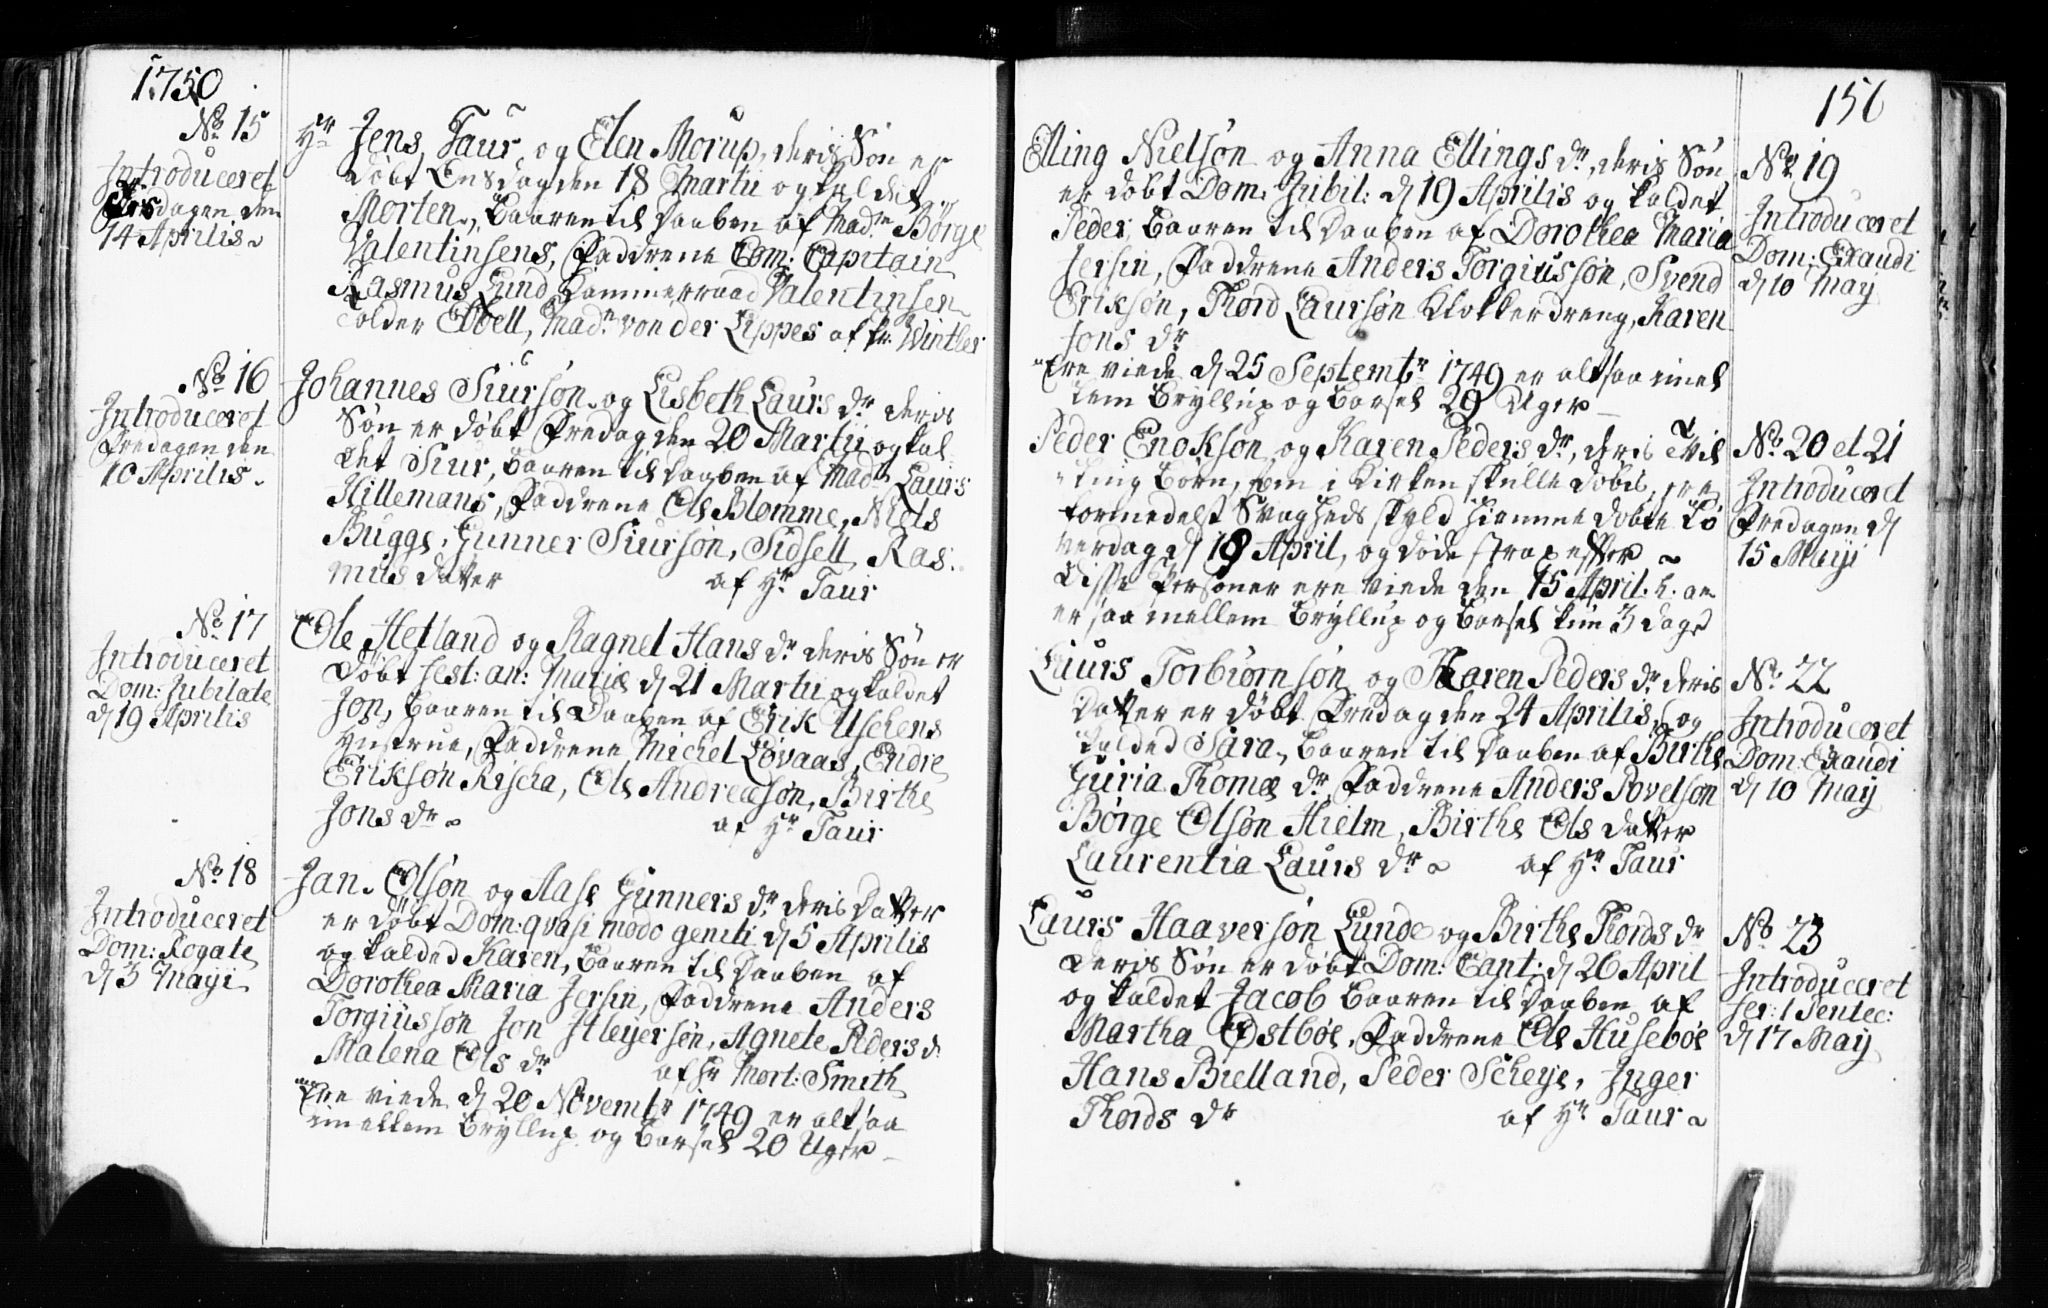 1750
No. 15
Introduceret
dagen den
14 Aprilis
Hr. Jens Taur og Elen Morup, deris Søn er
døbt Onsdag den 18 Martii og kaldet
Morten, Baaren til Daaben af Madme Børge
Valentinsens, Faddrene Com: Capitain
Rasmus Lund Cammerraad Valentinsen
Tolder Ebbell, Madm von der Lippes af Hr. Winther
No. 16
Introduceret
Fredagen den
10 Aprilis.
Johannes Siursøn og Lisbeth Laurs dr. deris
Søn er døbt Fredag den 20 Martii og kal
det Siur, Baaren til Daaben af Mad. Laurs
Hillemans, Faddrene Ole Blomme, Niels
Bugge, Gunner Siursøn, Sidsell Ras:
mus Datter af Hr. Taur
No. 17
Introduceret
Dom: Jubilate
d 19 Aprilis
Ole Hetland og Ragnel Hans dr. deris Søn er
Døbt fest: an: Mariæ d 21 Martii og kaldet
Jon, Baaren til Daaben af Erik Uschens
Hustrue, Faddrene Michel Løvaas, Endre
Eriksøn Rischa, Ole Andreasøn, Birthe
Jons dr. af Hr. Taur
No. 18
Introduceret
Dom: Rogate
d 3 Maji
Jan Olsøn og Aase Gunners dr. deris Datter
er døbt Dom: qvasi modo geniti d 5 Aprilis
og kalded Karen, Baaren til Daaben af
Dorothea Maria Jersin, Faddrene Anders
Torgiussøn Jon Hleyersøn, Agnete Pders d.
Malena Ols dr. af Hr. Mort: Smith
Ere viede d 20 Novembr 1749 er altsaa
imellem Bryllup og Barsel 20 Uger
156
Elling Nielsøn og Anna Ellings dr., deris Søn
er døbt Dom: Jubil: d 19 Aprilis og kaldet
Peder, Baaren til Daaben af Dorothea Maria
Jersin, Faddrene Anders Torgiussøn, Svend
Eriksøn, Thord Laursøn Klokkerdreng, Karen
Jons dr.
Ere viede d 25 Septembr 1749 er altsaa imel
lem Bryllup og Barsel 29 Uger
No. 19
Introduceret
Dom: Exaudi
d 10 May
Peder Enoksøn og Karen Peders dr., deris Tvil
ling Børn, som i Kirken skulle døbis, ere
formedelst Svagheds skyld hiemme døbte Lø
verdag d 18 April, og døde strax efter
Disse Personer ere viede den 15 April. h. an
er saa mellem Bryllup og Barsel kun 3 Dage
No. 20 et 21
Introduceret
Fredagen d
15 Maji
Laurs Torbiørnsøn og Karen Peders dr. deris
Datter er døbt Fredag den 24 Aprilis, og
kalded Sara, Baaren til Daaben af Birthe
Guria Thomæ dr. Faddrene Anders Povelsøn
Børge Olsøn Hielm, Birthe Ols Datter
Laurentia Laurs dr. af Hr. Taur
No. 22
Introduceret
Dom: Exaudi
d 10 May
Laurs Haaversøn Lunde og Birthe Thords dr
deris Søn er døbt Dom: Cant: d 26 April
og kaldet Jacob Baaren til Daaben af
Martha Østbøe, Faddrene Ole Husebøe
Hans Bielland, Peder Scheye, Inger
Thords dr af Hr. Taur
No. 23
Introduceret
fer: 1 Pentec:
d 17 May